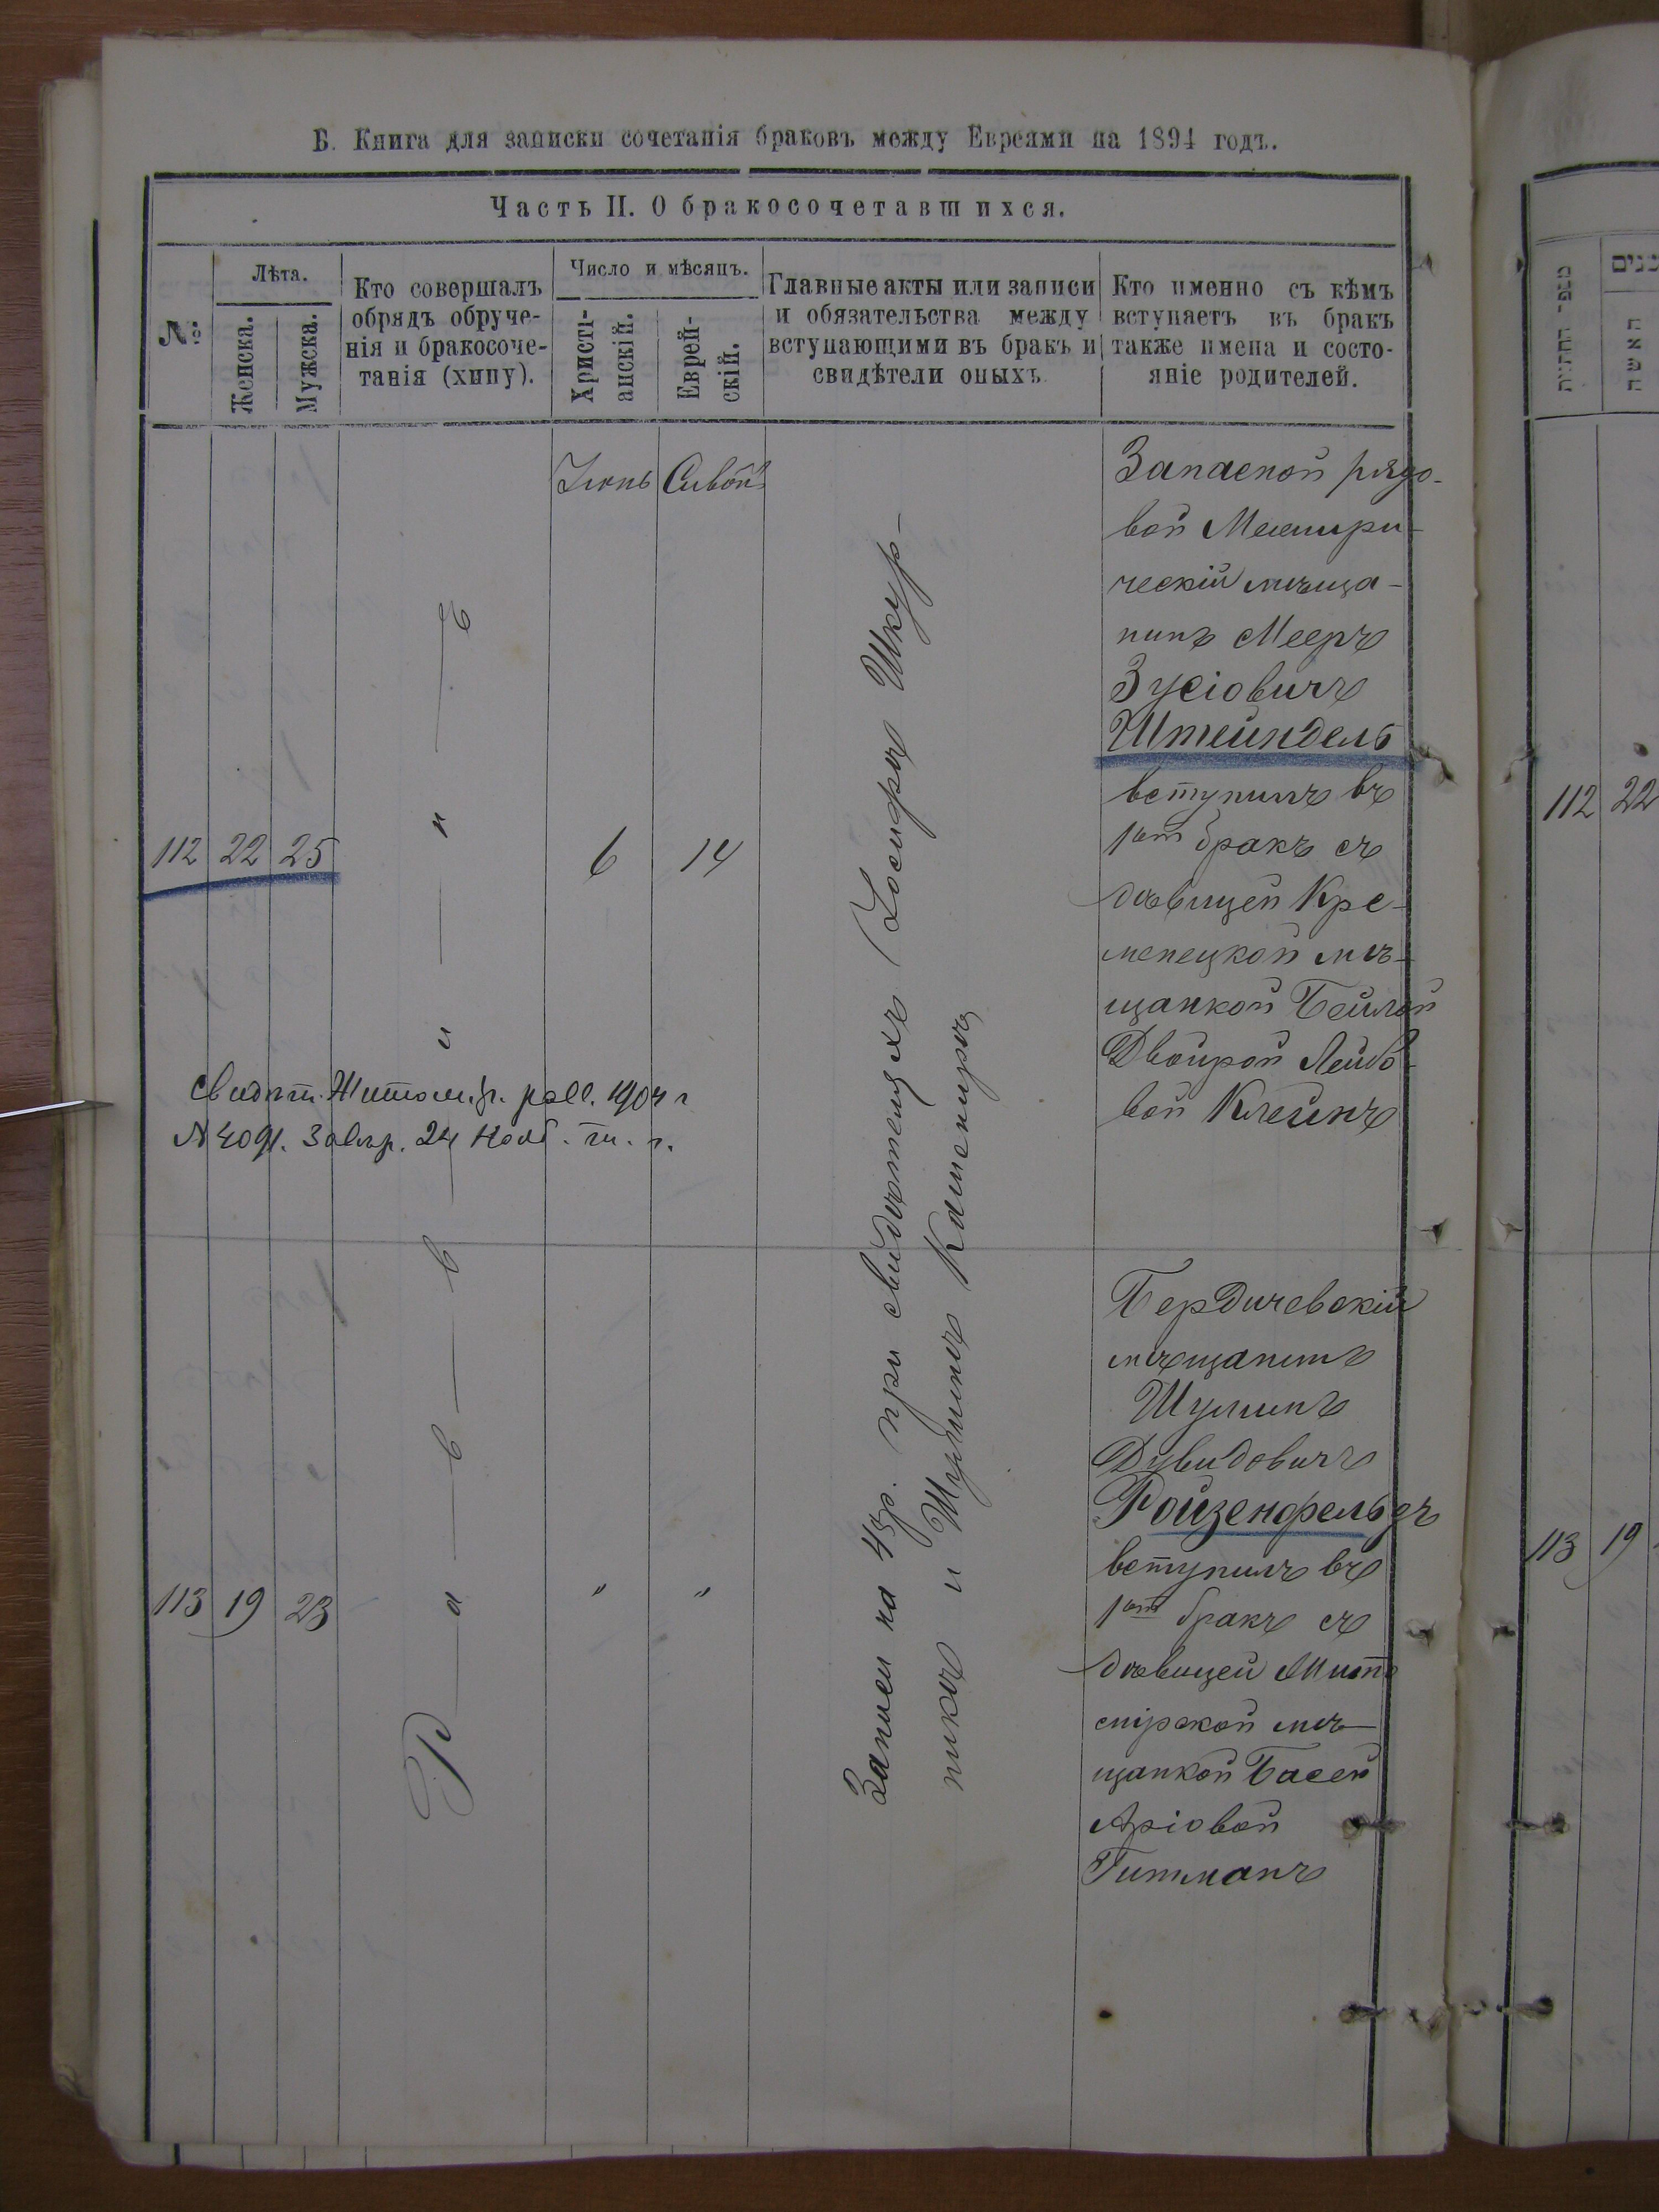 Б. Книга для записки сочетанія браковъ между Евреями на 1894 годъ.
Часть II. О бракосочетавшихся.
№
Лѣта.
Женска.
Мужска.
Кто совершалъ
обрядъ обруче-
нія и бракосоче-
танія (хипу).
Число и мѣсяцъ.
Христі-
анскій.
Еврей-
скій.
Главные акты или записи
и обязательства между
вступающими въ бракъ и
свидѣтели оныхъ
Кто именно съ кѣмъ
вступаетъ въ бракъ
также имена и состо-
яніе родителей.
Р а в в и н ъ
Іюнь Сивонъ
112 22 25
6 14
Запис на 48р. при свидѣтеляхъ Іосифѣ Шкур-
никѣ и Шулимѣ Каменирѣ
Запасной рядо-
вой Межири-
ческій мѣща-
нинъ Мееръ
Зусіовичъ
Штейндель
вступилъ въ
1ый бракъ съ
дѣвицей Кре-
менецкой мѣ-
щанкой Бейлой
Двойрой Лейбо-
вой Клейнъ
Свидѣт. Житомір. 1904 г
№ 4091. 24 Нояб. т. г.
113 19 23
" "
Бердичевскій
мѣщанинъ
Шулимъ
Дувидовичъ
Ройзенфельдъ
вступилъ въ
1ый бракъ съ
дѣвицей Жито
мірской мѣ-
щанкой Басей
Аріовой
Гитманъ
כפי החתונה
שנים
האשה
112 22
113 19